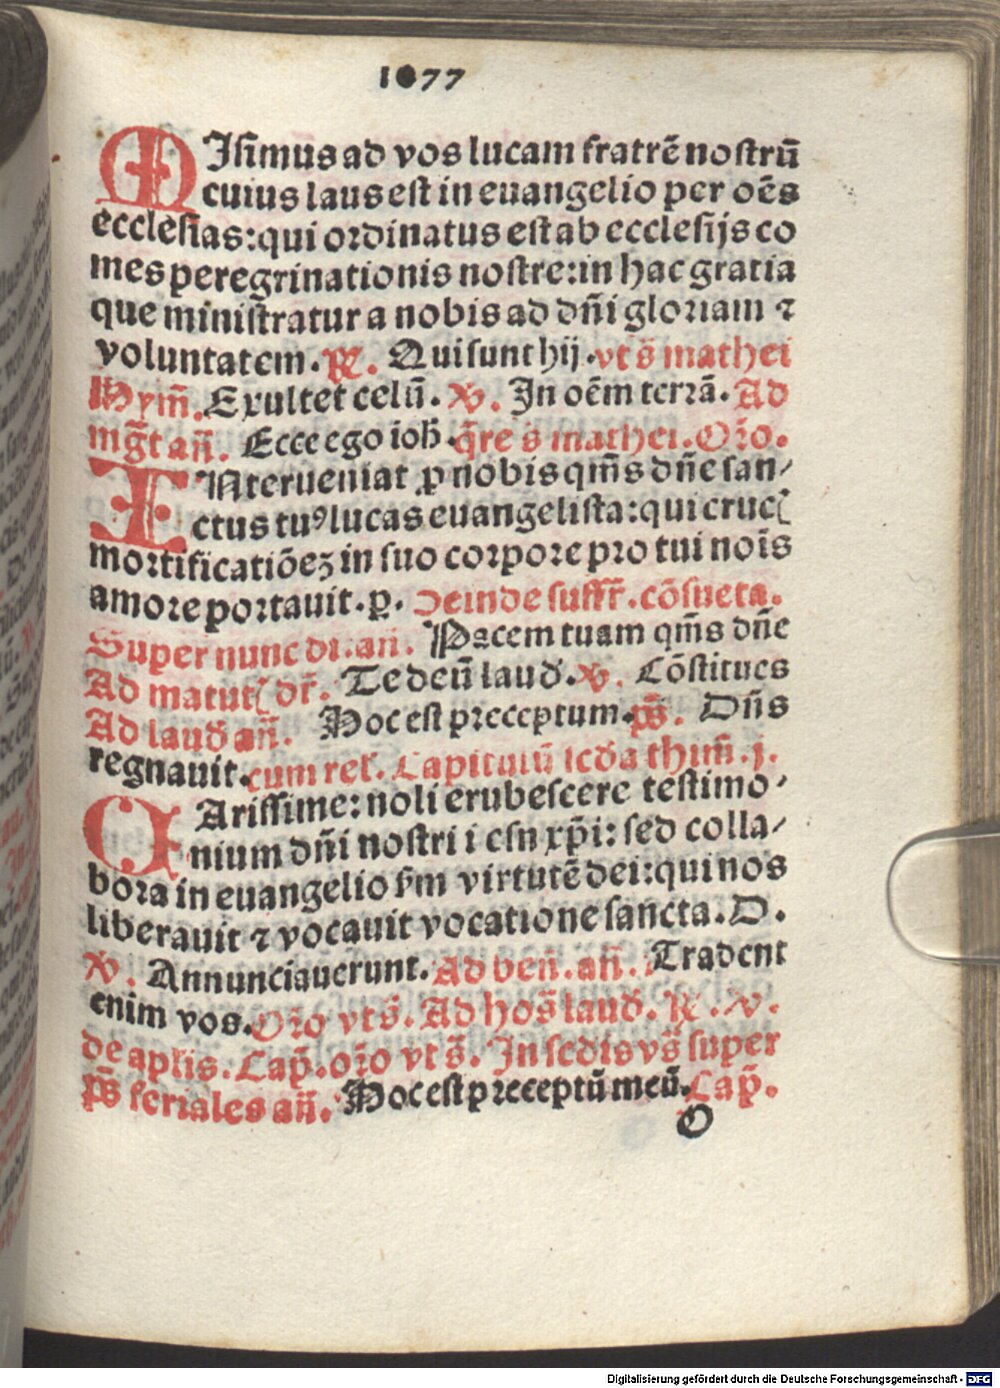 1077
MIsimus ad vos lucam fratrē nostrū
cuius laus est in euangelio per oēs
ecclesias: qui ordinatus est ab ecclesijs co
mes peregrinationis nostre: in hac gratia
que ministratur a nobis ad dn̄i gloriam ⁊
voluntatem. ℟. Qui sunt hij. vt s̄ mathei
Hym̄. Exultet celū. ℣. In oēm terrā. Ad
mḡt an̄. Ecce ego ioh̄. q̄re s̄ mathei. Or̄o.
INterueniat ꝓ nobis qm̄s dn̄e san/
ctus tuꝰ lucas euangelista: qui cruc
mortificatiōeꝫ in suo corpore pro tui noīs
amore portauit. ꝑ. Deinde suffr̄. cōsueta.
Super nunc di. an̄. Pacem tuam qm̄s dn̄e
Ad matut dr̄. Te deū laud̄. ℣. Cōstitues
Ad laud̄ an̄. Hoc est preceptum. ps̄. Dn̄s
regnauit. cum rel̄. Capitulū scd̄a thim̄. j.
CArissime: noli erubescere testimo/
nium dn̄i nostri iesu xp̄i: sed colla/
bora in euangelio sm̄ virtutē dei: qui nos
liberauit ⁊ vocauit vocatione sancta. D.
℣. Annunciauerunt. Ad ben̄. an̄. Tradent
enim vos. Or̄o vt s̄. Ad hos̄ laud̄. ℟. ℣.
de aplis. Cap̄. or̄o vt s̄. In scd̄is vs̄ super
ps̄ feriales an̄. Hoc est preceptū meū. Cap̄.
O
Digitalisierung gefördert durch die Deutsche Forschungsgemeinschaft - DFG